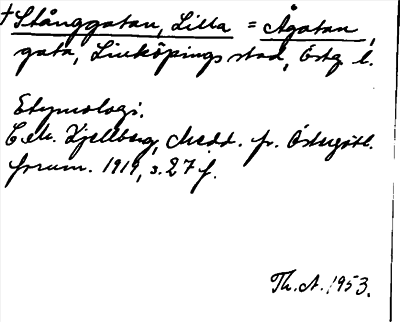 † Stånggatan, Lilla = Ågatan,
gata, Linköpings stad, Östg l.
Etymologi.
C.M. Kjellberg, Medd. fr. Östergötl.
fornm. 1919, s. 27 f.
Th. A. 1953.